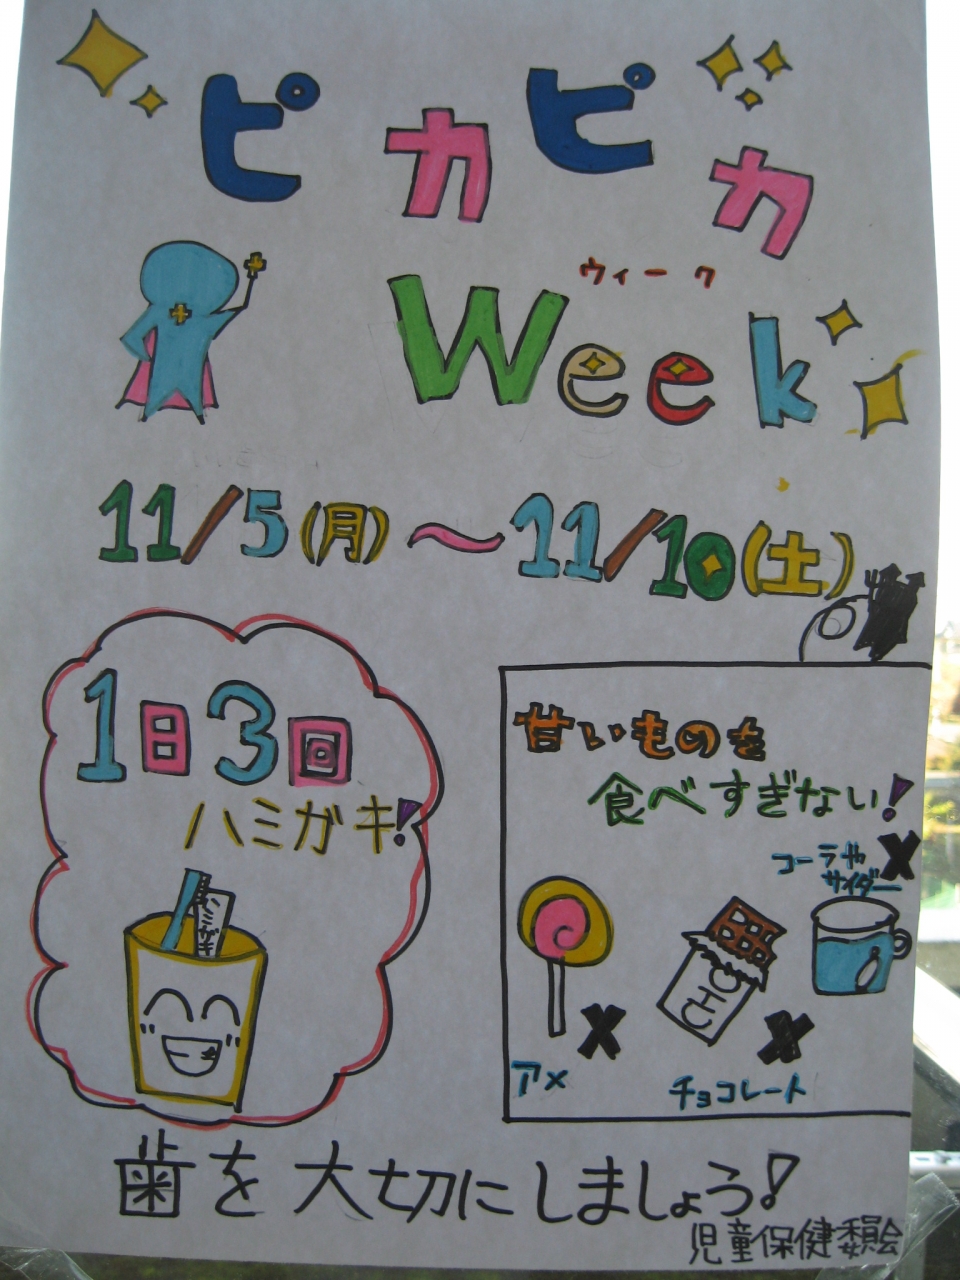 ピカピカ
ウィーク
Week
11/5(月)〜11/10(土)
1日3回
ハミガキ!
ハミガキ
甘いものを
食べすぎない!
コーラや
サイダー
アメ
チョコ
チョコレート
歯を大切にしましょう!
児童保健委員会